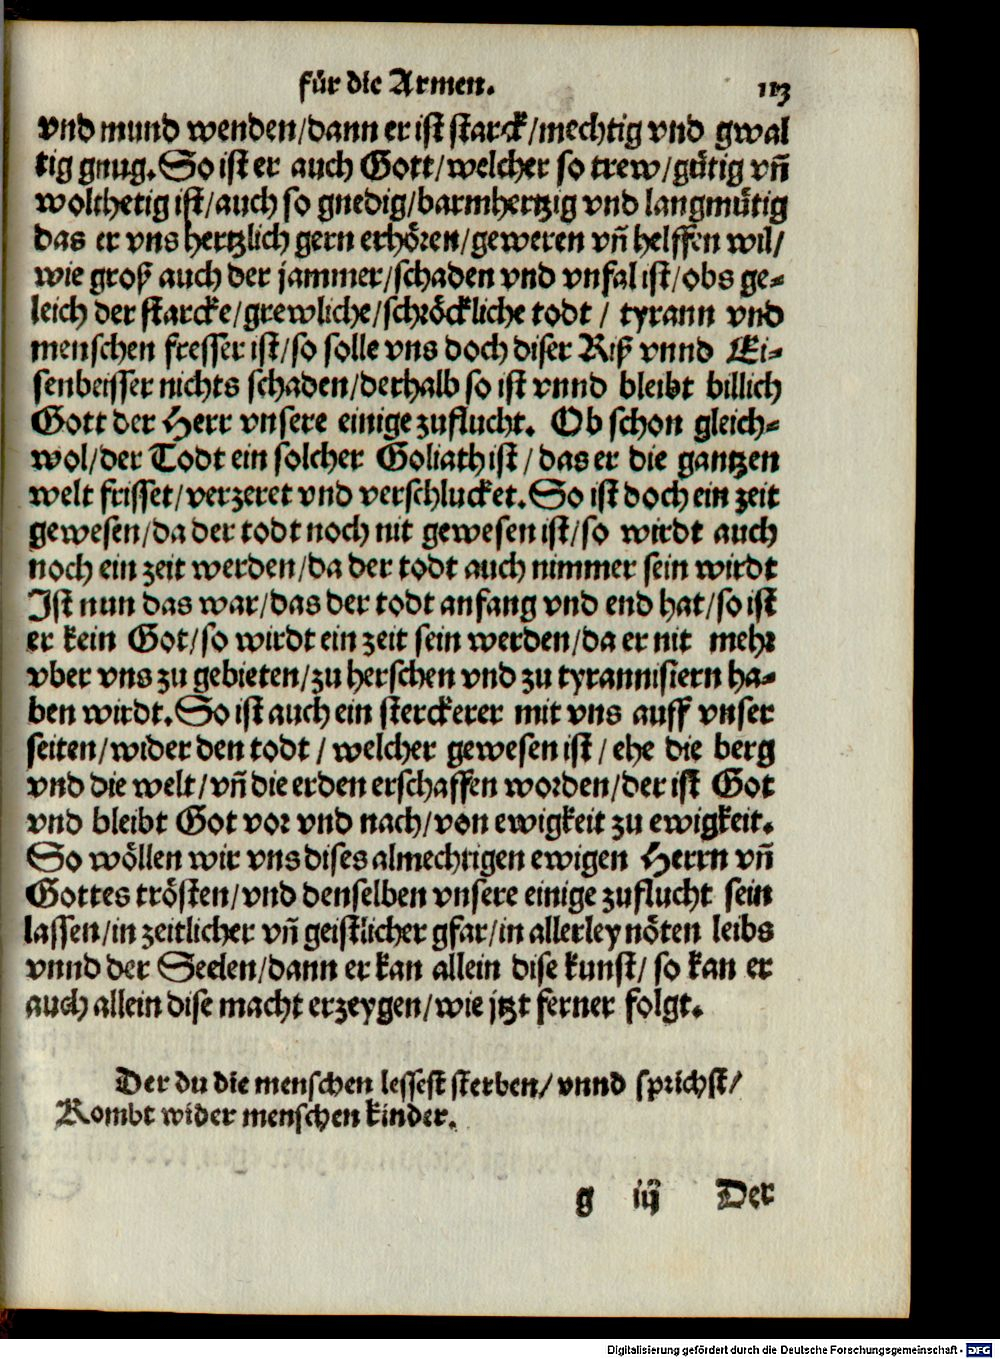 für die Armen. 113
vnd mund wenden/dann er ist starck/mechtig vnd gwal
tig gnug. So ist er auch Gott/welcher so trew/gütig vñ
wolthetig ist/auch so gnedig/barmhertzig vnd langmütig
das er vns hertzlich gern erhören/geweren vñ helffen wil/
wie groß auch der jammer/schaden vnd vnfal ist/obs ge-
leich der starcke/grewliche/schröckliche todt / tyrann vnd
menschen fresser ist/so solle vns doch diser Riß vnnd Ei-
senbeisser nichts schaden/derhalb so ist vnnd bleibt billich
Gott der Herr vnsere einige zuflucht. Ob schon gleich-
wol/der Todt ein solcher Goliath ist / das er die gantzen
welt frisset/verzeret vnd verschlucket. So ist doch ein zeit
gewesen/da der todt noch nit gewesen ist/so wirdt auch
noch ein zeit werden/da der todt auch nimmer sein wirdt
Ist nun das war/das der todt anfang vnd end hat/so ist
er kein Got/so wirdt ein zeit sein werden/da er nit mehr
vber vns zu gebieten/zu herschen vnd zu tyrannisiern ha-
ben wirdt. So ist auch ein sterckerer mit vns auff vnser
seiten/wider den todt / welcher gewesen ist / ehe die berg
vnd die welt/vñ die erden erschaffen worden/der ist Got
vnd bleibt Got vor vnd nach/von ewigkeit zu ewigkeit.
So wöllen wir vns dises almechtigen ewigen Herrn vñ
Gottes trösten/vnd denselben vnsere einige zuflucht sein
lassen/in zeitlicher vñ geistlicher gfar/in allerley nöten leibs
vnnd der Seelen/dann er kan allein dise kunst/ so kan er
auch allein dise macht erzeygen/wie jtzt ferner folgt.
Der du die menschen lessest sterben/ vnnd sprichst/
Kombt wider menschen kinder.
g iij Der
Digitalisierung gefördert durch die Deutsche Forschungsgemeinschaft - DFG